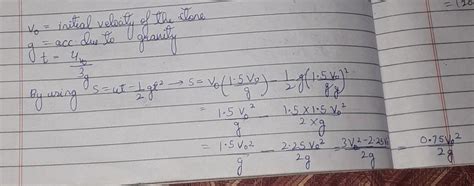 v₀ = initial velocity of the stone
g = acc due to gravity
t = 4v₀/3g
By using s = ut - 1/2 gt² → s = v₀(1.5v₀/g) - 1/2 g(1.5v₀/g)²
= 1.5v₀²/g - 1.5 × 1.5v₀²/2 × g
= 1.5v₀²/g - 2.25v₀²/2g = 3v₀² - 2.25/2g = 0.75v₀²/2g